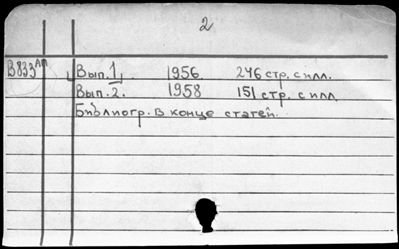 2
В833 Ап Вып. 1 1956 246 стр. с илл.
Вып. 2. 1958 151 стр. с илл.
Библиогр. в конце статей.